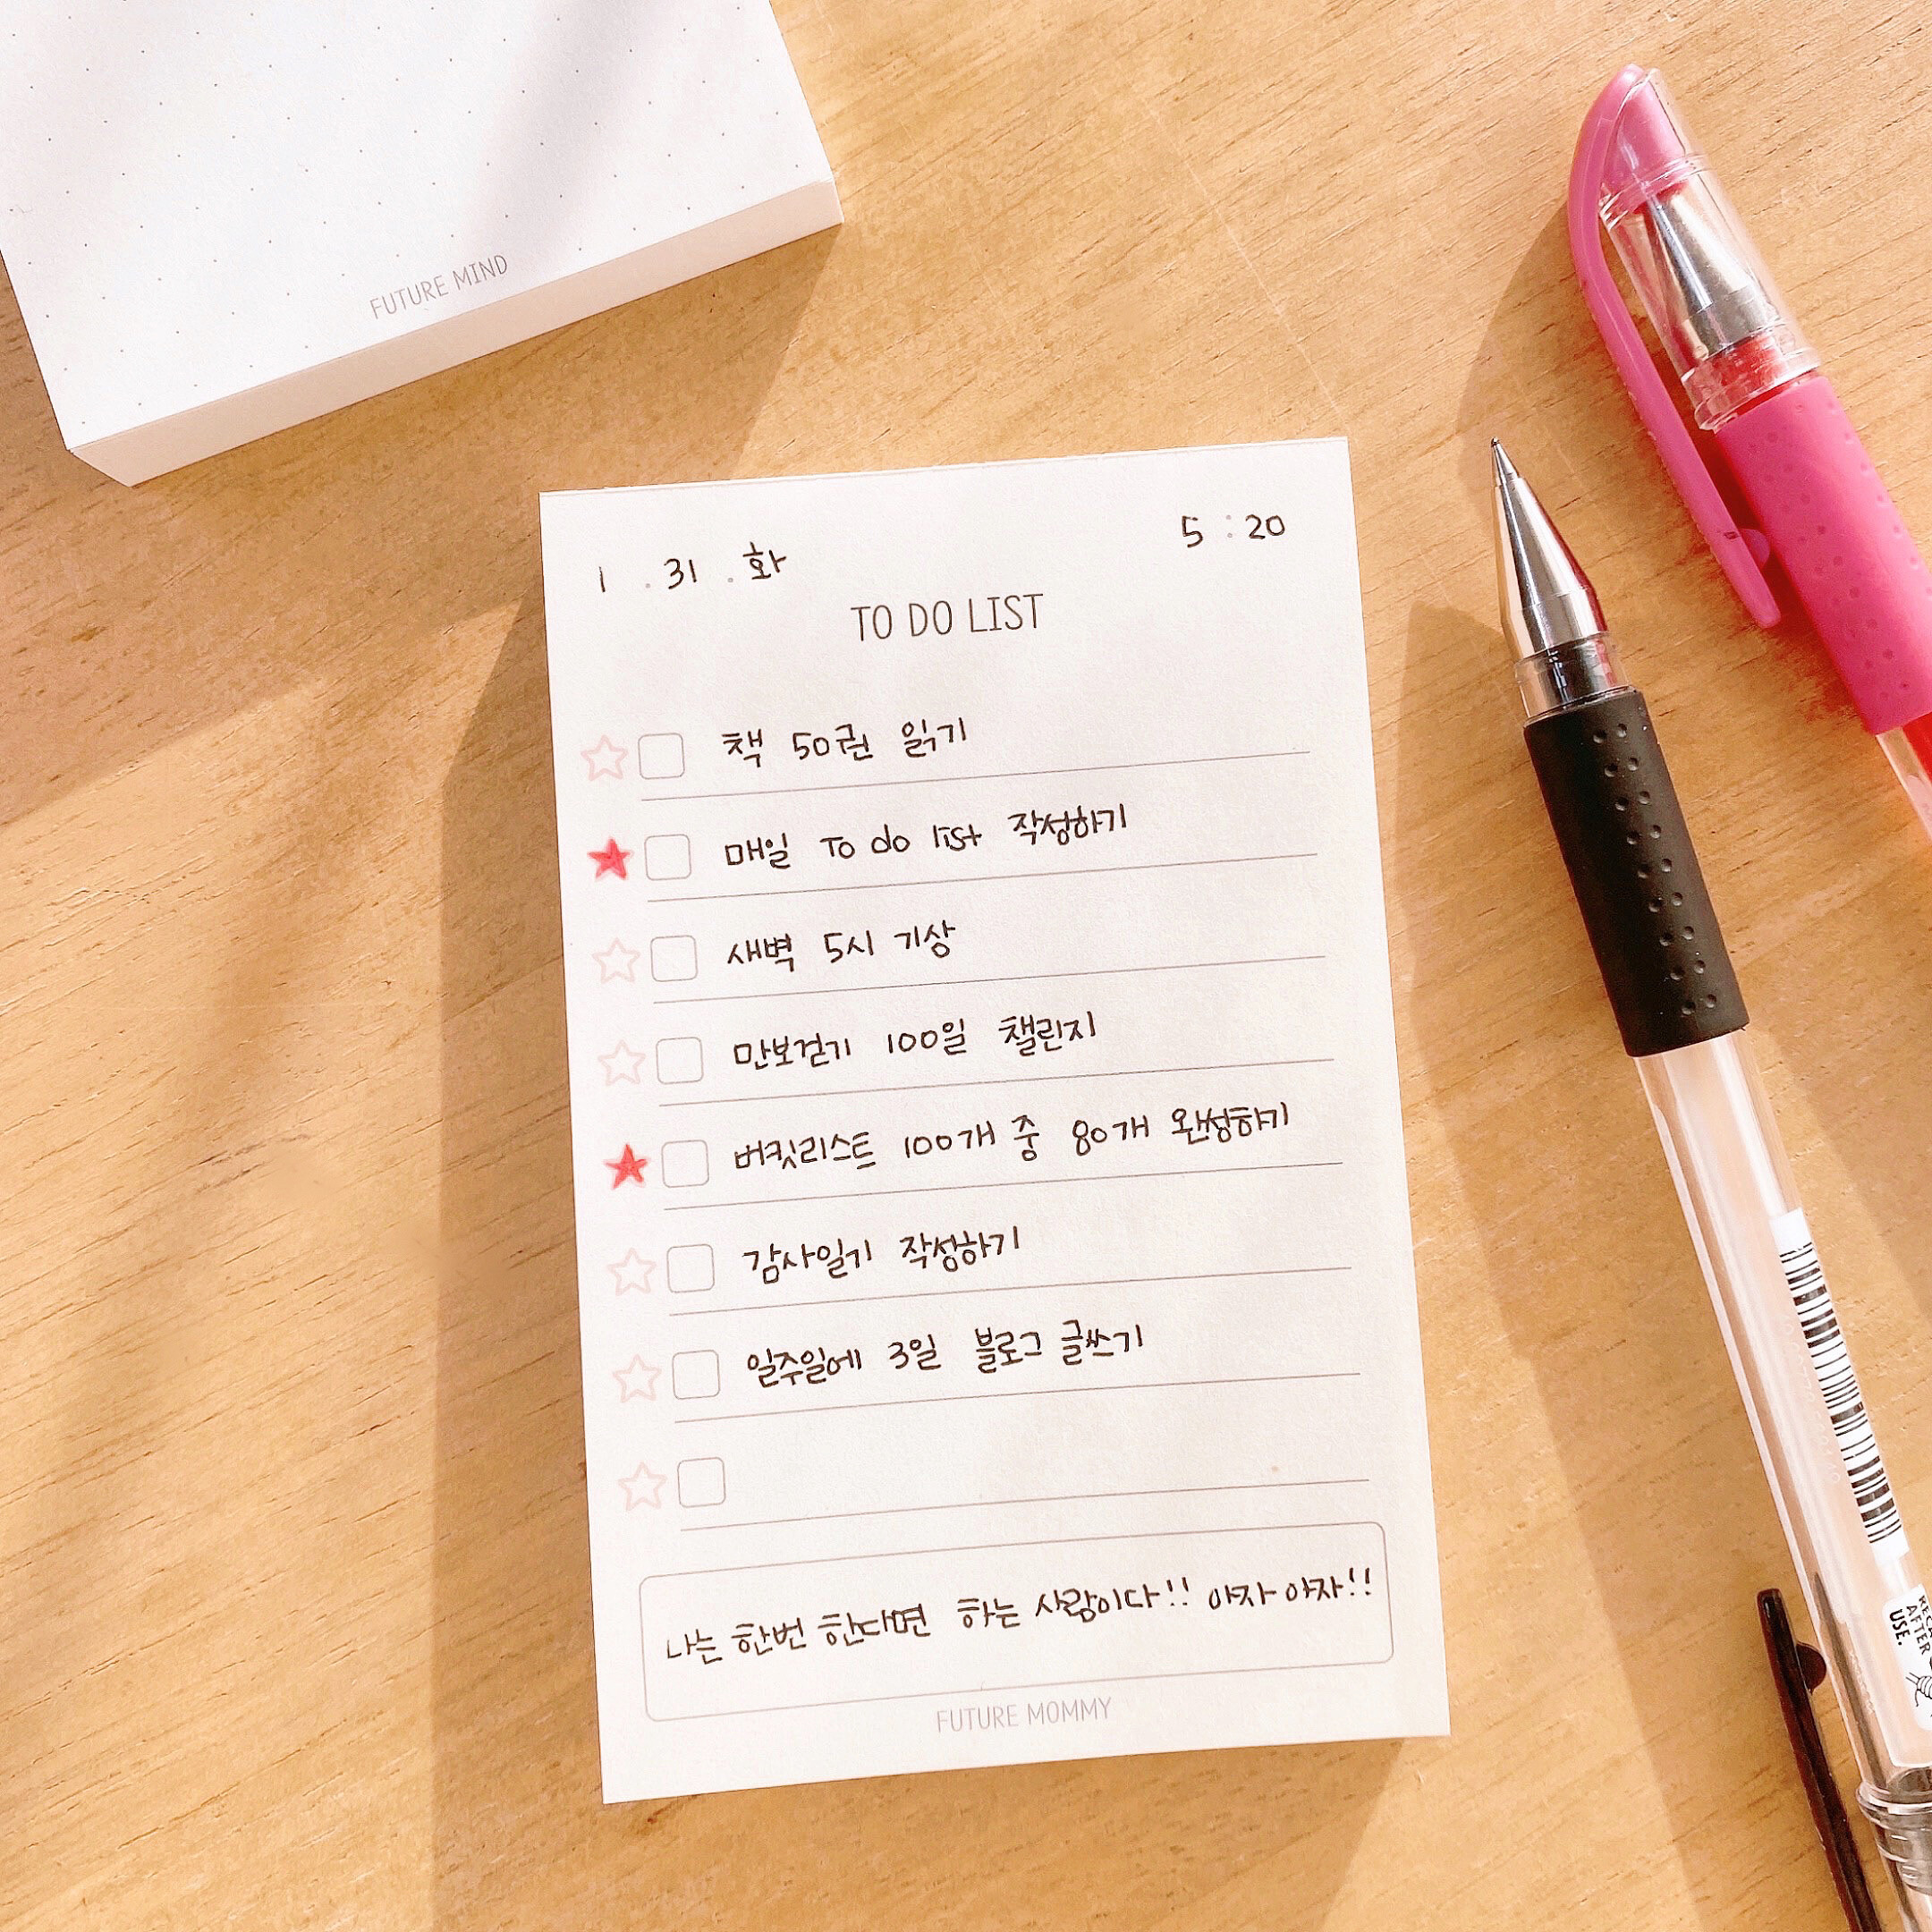 FUTURE MIND
1 . 31 . 화
5 : 20
TO DO LIST
책 50권 읽기
매일 To do list 작성하기
새벽 5시 기상
만보걷기 100일 챌린지
버킷리스트 100개 중 80개 완성하기
감사일기 작성하기
일주일에 3일 블로그 글쓰기
나는 한번 한다면 하는 사람이다!! 아자 아자!!
FUTURE MOMMY
AFTER
USE.